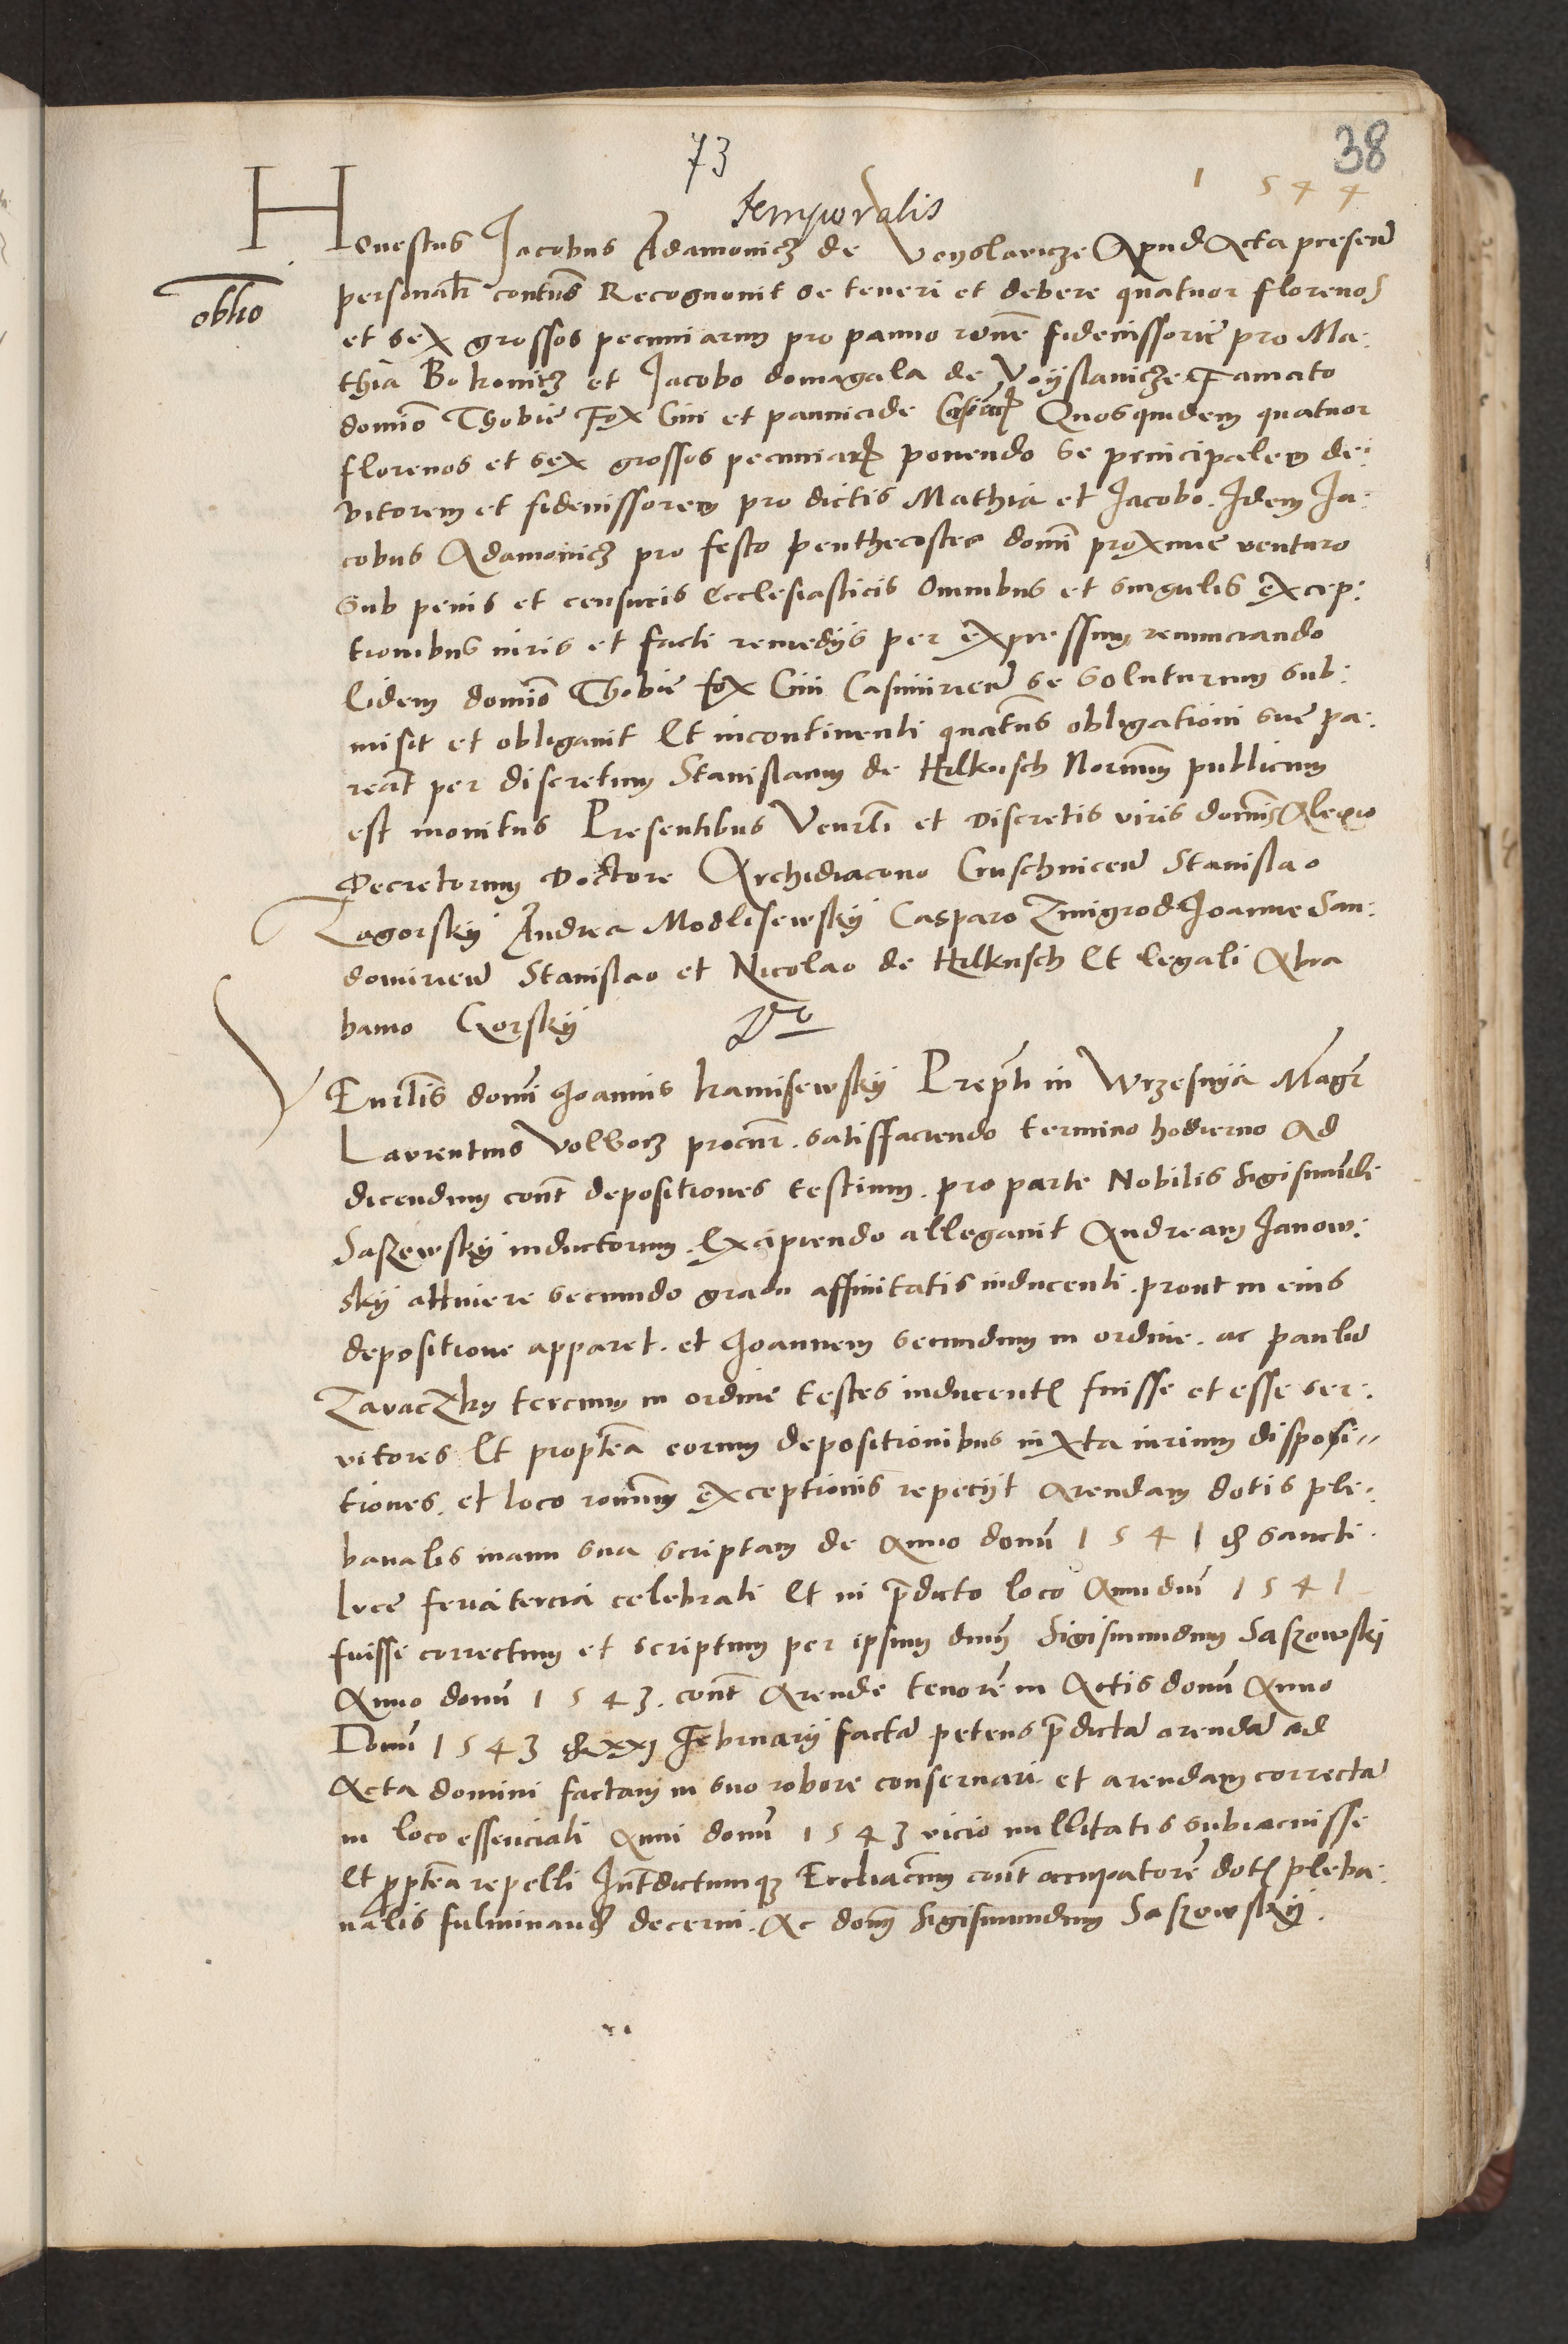 73
38
1544
temporalis
Honestus Jacobus Adamovicz de Voyslavicze Apud Acta presen̄
oblio
personalr̄ contus̄ Recognovit se teneri et debere quatuor florenos
et sex grossos pecuniarum pro panno rōne fideiussorie pro Ma:
thia Bokovicz et Jacobo domagala de Voyslavicze Famato
domino Thobie Fox Civi et pannicide Quos quidem quatuor
florenos et sex grossos pecuniar̄ ponendo se principalem de:
bitorem et fideiussorem pro dictis Mathia et Jacobo. Idem Ja:
cobus Adamovicz pro festo penthecostes domī proxime venturo
sub penis et censuris Ecclesiasticis Omnibus et singulis excep:
tionibus iuris et facti remedijs per expressum renunciando
Eidem domino Thobie fox Civi Casimirien̄ se soluturum sub:
misit et obligavit Et incontinenti quatus̄ obligationi sue pa:
reat̄ per discretum Stanislaum de Helkusch Notarium publicum
est monitus Presentibus Venerli et Discretis viris dominis Alexio
Decretorum Doctore Archidiacono Cruschvicen̄ Stanislao
Zagorskij Andrea Modlisewskij Casparo Zmigrod Joanne San:
domirien̄ Stanislao et Nicolao de Helkusch Et legali Abra
hamo Gorskij
Venerlis domī Joannis kamisewskij Prepti in Wrzesnya Magr̄
Laurentius Volborz procur̄. satisfaciendo termino hodierno Ad
dicendum cont̄ depositiones testium. pro parte Nobilis Sigismundi
Saszewskij inductorum. Excipiendo allegavit Andream Janow:
skij attinere secundo gradu affinitatis inducenti. prout in eius
depositione apparet. et Joannem secundum in ordine. ac paulū
Zavaczky tercium in ordine testes inducentis fuisse et esse ser:
vitores Et proptea eorum depositionibus iuxta iurium disposi=
tiones. et loco exceptionis repeciit arendam dotis ple:
banalis manu sua scriptam de Anno domī 1541 sancti
luce feria tercia celebrati Et in p̄dicto loco Anni dm̄ 1541
fuisse correctum et scriptum per ipsum dnm̄ Sigismundum Saszowskj
Anno domī 1543. cont̄ Arende tenorē in Actis domī Anno
Domī 1543 xxj Februarij factā petens p̄dictā arendā ad
Acta domini factam in suo robore conservari. et arendam correctā
in loco essenciali Anni domī 1543 vicio nullitatis subiacuisse
Et proptea repelli Intdictumque Ecclıacum cont̄ occupatorē dotis pleba:
nalis fulminand̄ decerni. Ac domm̄ Sigismundum Saszowskij.